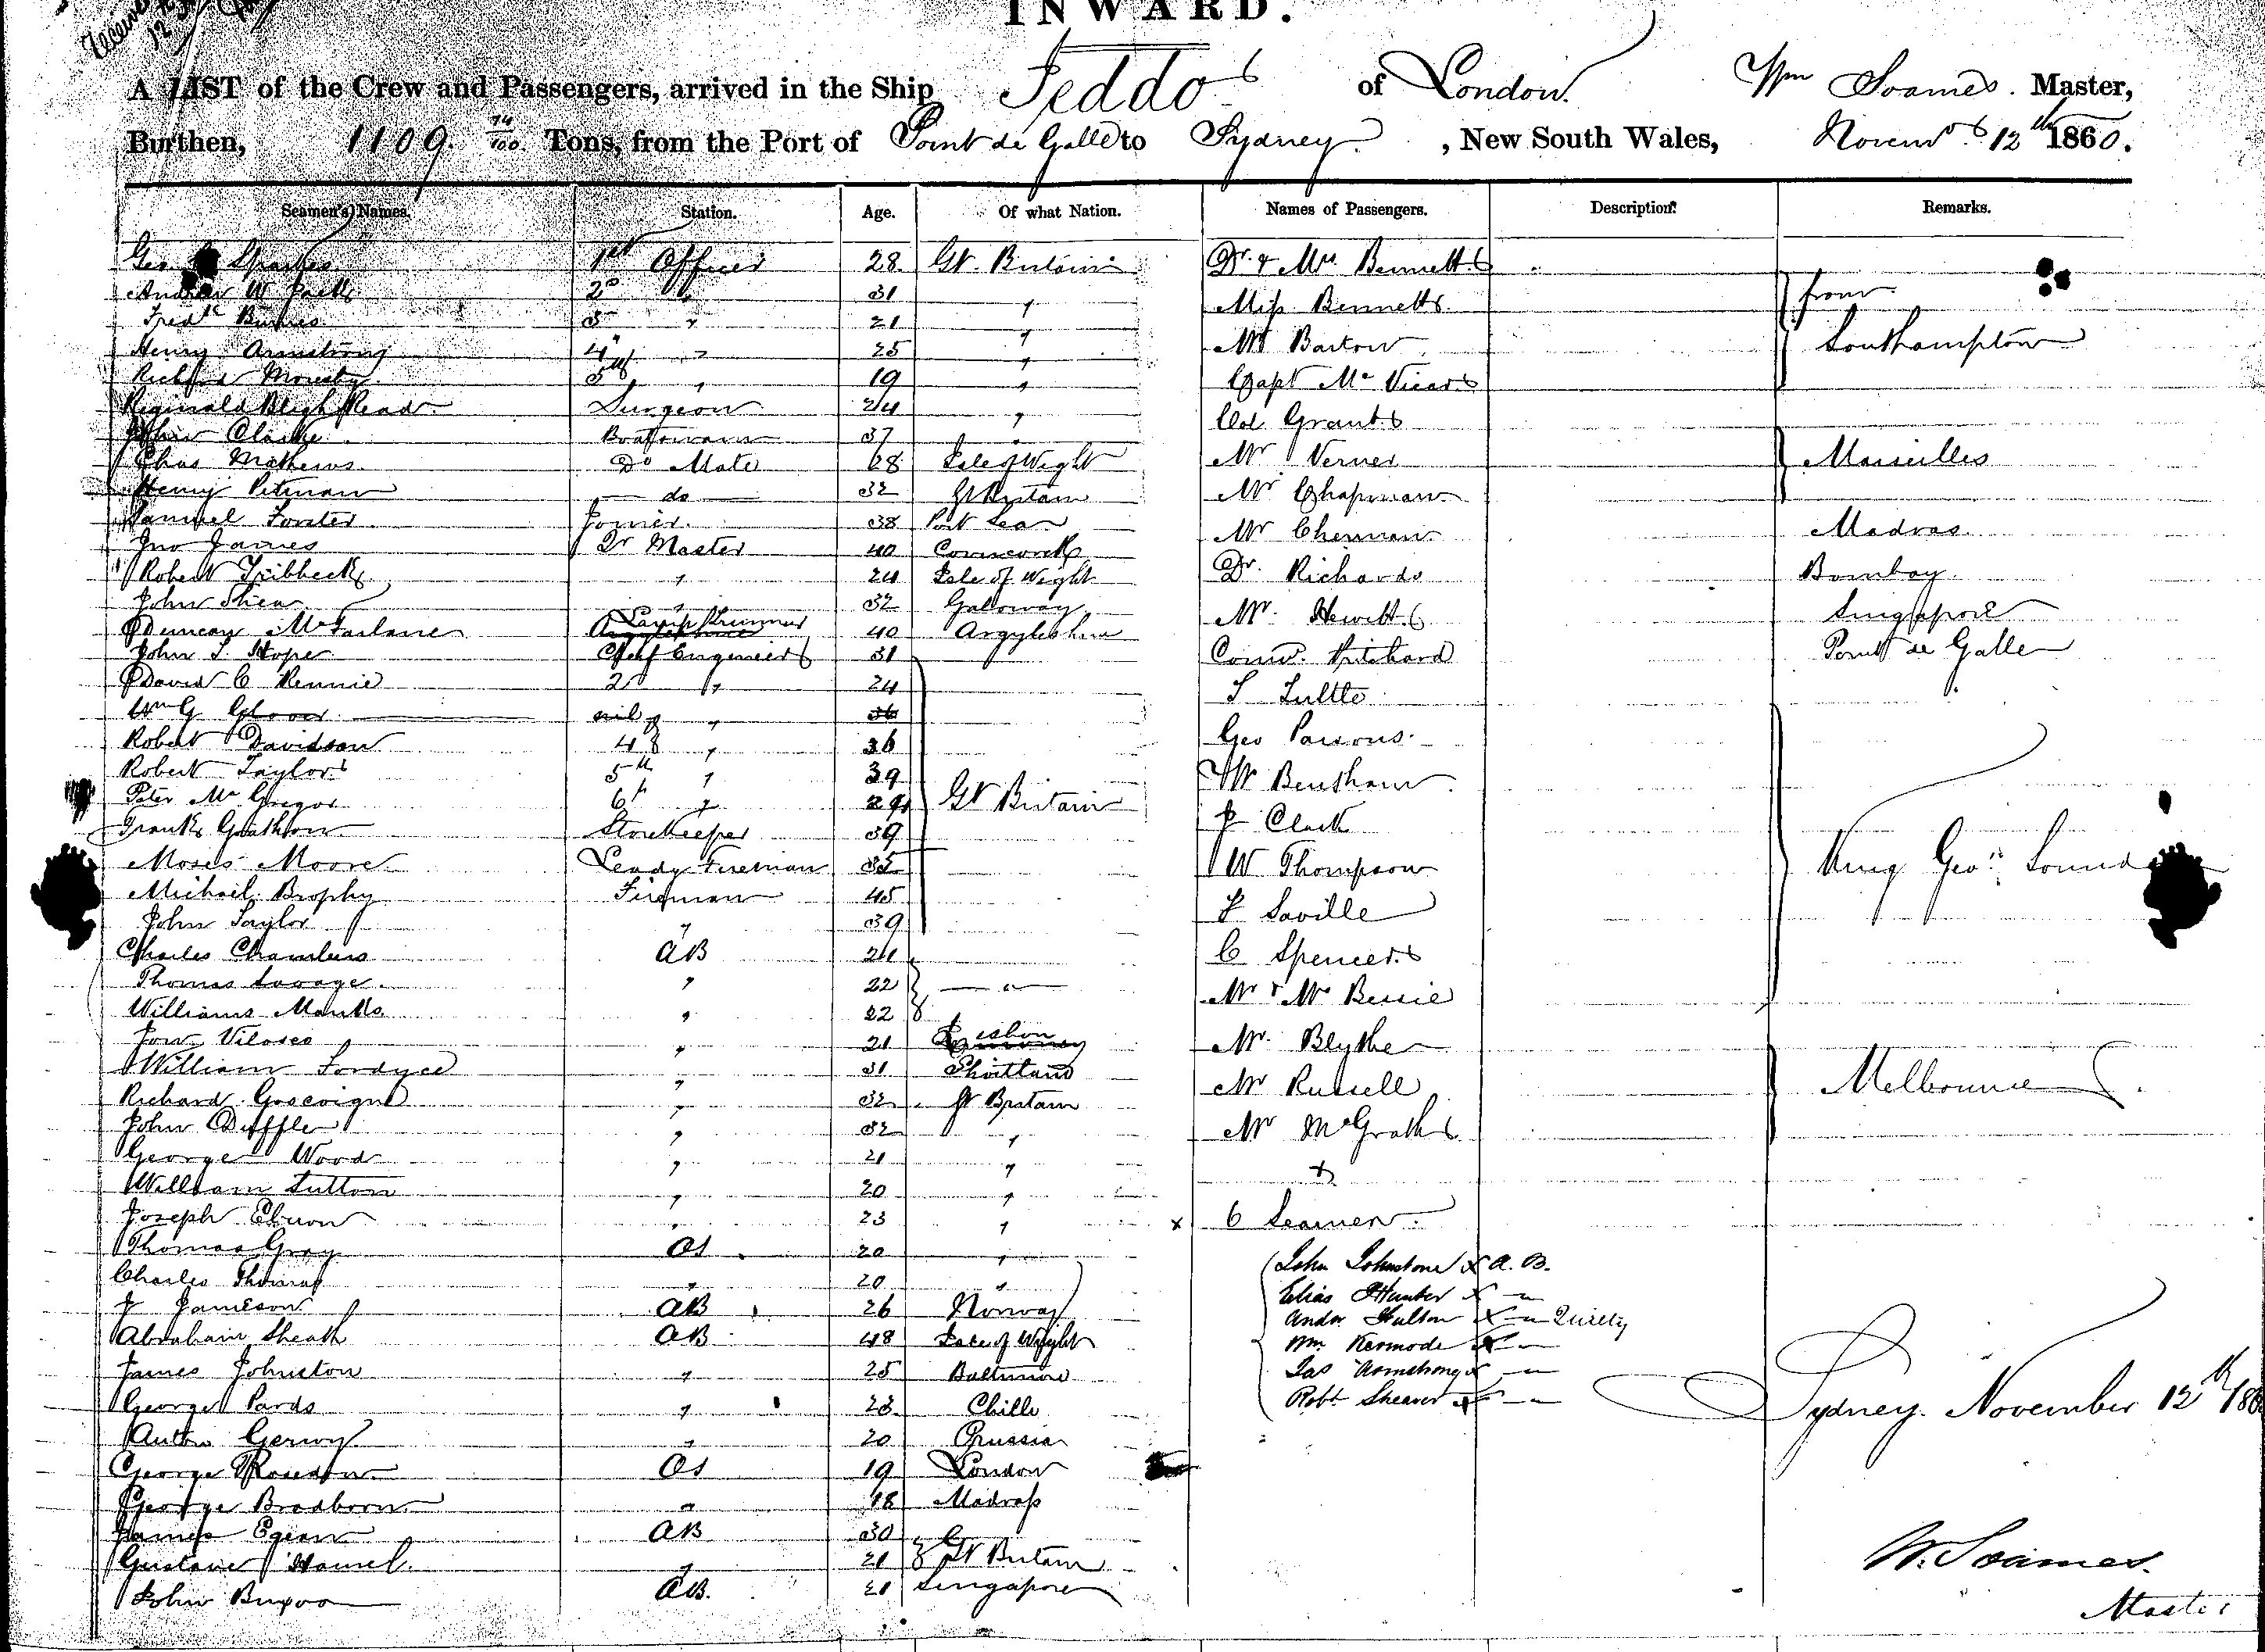 INWARD.
A LIST of the Crew and Passengers, arrived in the Ship Jeddo of London. Wm Soames. Master,
Burthen, 1109. 74/100 Tons, from the Port of Point de Galle to Sydney. , New South Wales, Novemr 12th 1860.
Seamen's Names. Station. Age. Of what Nation. Names of Passengers. Description. Remarks.
Geo 1st Officer 28 Gt. Britain Dr. & Mrs Bennett
Andrew W 2d 31 " Miss Bennett from
Fredk 3 " 21 " Mr Barton Southampton
Henry Armstrong 4th " 25 " Capt Mc Vicar
Richard Moresby 5th " 19 "
Reginald Bligh Read Surgeon 24 " Col Grant
John Clarke Boatswain 37 " Mr Verner Marseilles
Chas Mathews Do Mate 28 Isle of Wight Mr Chapman
Henry Pitman do 32 Gt Britain
Samuel Forster Joiner 38 Port Sea Mr Cherman Madras
Jno James Qr Master 40
Robert Tribbeck " 24 Isle of Wight Dr. Richards Bombay
John Shea " 32 Galloway Mr. Hewitt Singapore
Duncan McFarlane Lamp Trimmer 40 Argyleshire
John T. Hope Chief Engineer 31 Pritchard Point de Galle
David C Rennie 2d " 24 T Tuttle
Wm G Glover nil "
Robert Davidson 4th " 36 Geo Parsons
Robert Taylor 5th " 39 W Bentham
Peter Mc Gregor 6th " 29 Gt Britain J Clark
Frank Storekeeper 39
Moses Moore Leadg Fireman 35 W Thompson King Geo: Sound
Michail Brophy Fireman 45 F Saville
John Taylor " 39
Charles Chambers AB 24 C Spencer
Thomas Savage " 22 " Mr & Mrs Bessie
Williams Manks " 22
" 21 Lisbon Mr. Blythe
William Fordyce " 31 Mr Russell Melbourne
Richard Gascoigne " 32 Gt Britain
John Duffle " 32 " Mr McGrath
George Wood " 21 "
William Sutton " 20 "
Joseph " 23 " x 6 Seamen.
Thomas Gray OS 20 " John Johnstone x A. B.
Charles Thomas " 20 " Elias Hunter x "
J Jameson AB 26 Norway Andr Hulton x "
Abraham Sheath AB 48 Isle of Wight Wm Kermode x "
James Johnston " 25 Baltimore Jas Armstrong x "
George Pards " 23 Chilli Robt Shearer x " Sydney. November 12th 186
" 20 Prussia
George OS 19 London
George Bradborn " 18 Madrass
James Egean AB 30 Gt Britain
Gustave Hamel " 21 W. Soames.
John AB. 21 Singapore Master